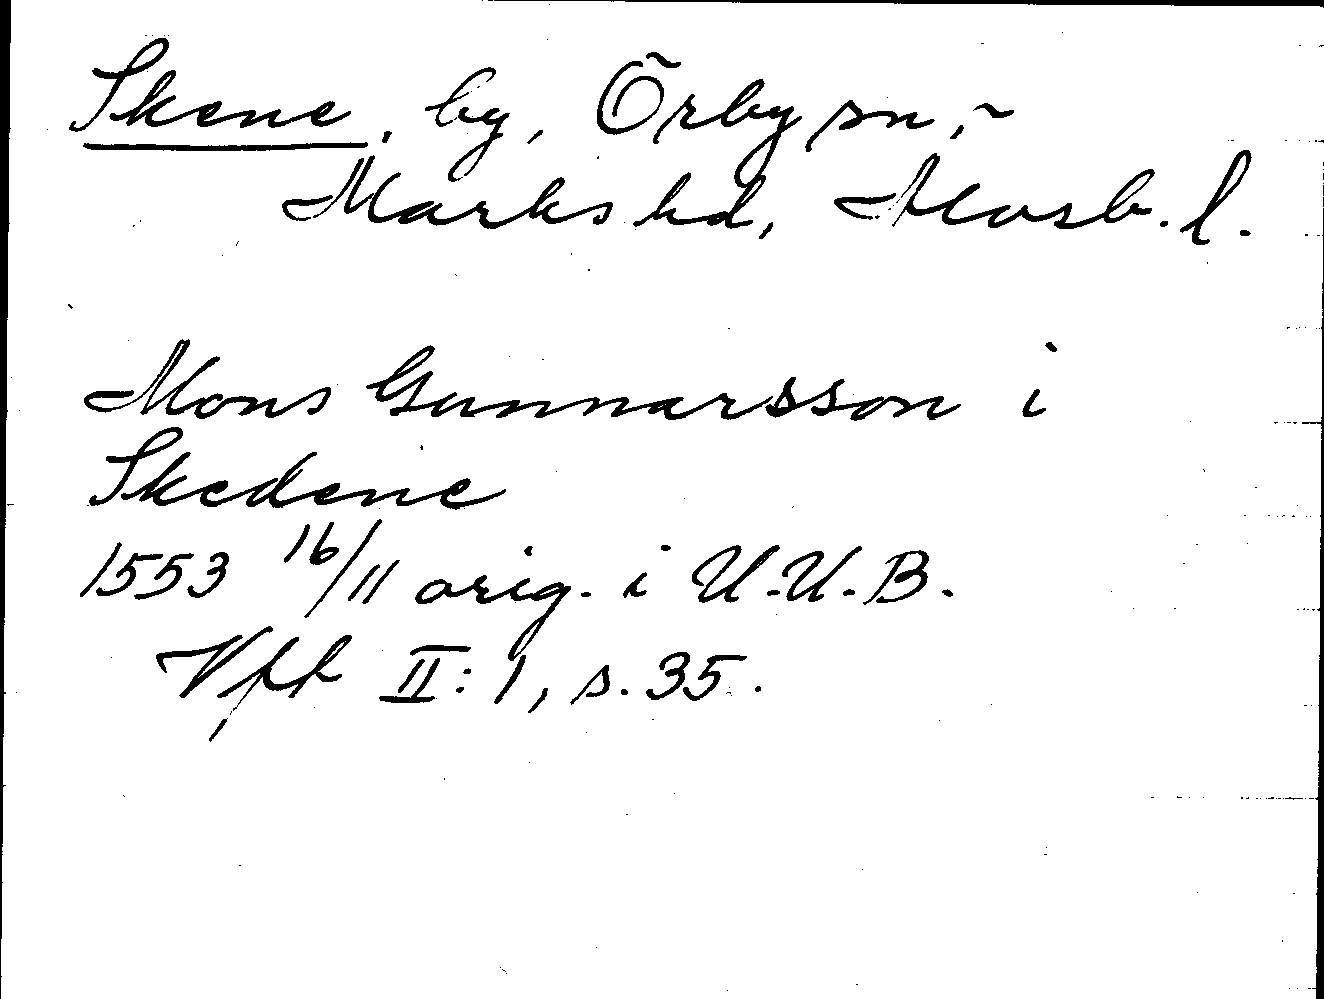 Skene, by, Örby sn,
Marks hd, Älvsb. l.
Mons Gunnarsson i
Skedene
1553 16/11 orig. i U.U.B.
Vft II: 1, s. 35.